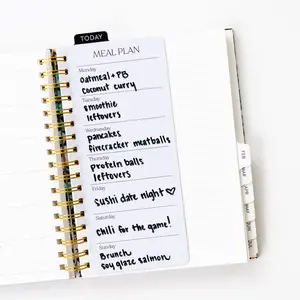 TODAY
MEAL PLAN
Monday
oatmeal + PB
coconut curry
Tuesday
smoothie
leftovers
Wednesday
pancakes
firecracker meatballs
Thursday
protein balls
leftovers
Friday
sushi date night ♡
Saturday
chili for the game!
Sunday
Brunch
soy glaze salmon
FEB
MAR
APR
MAY
JUN